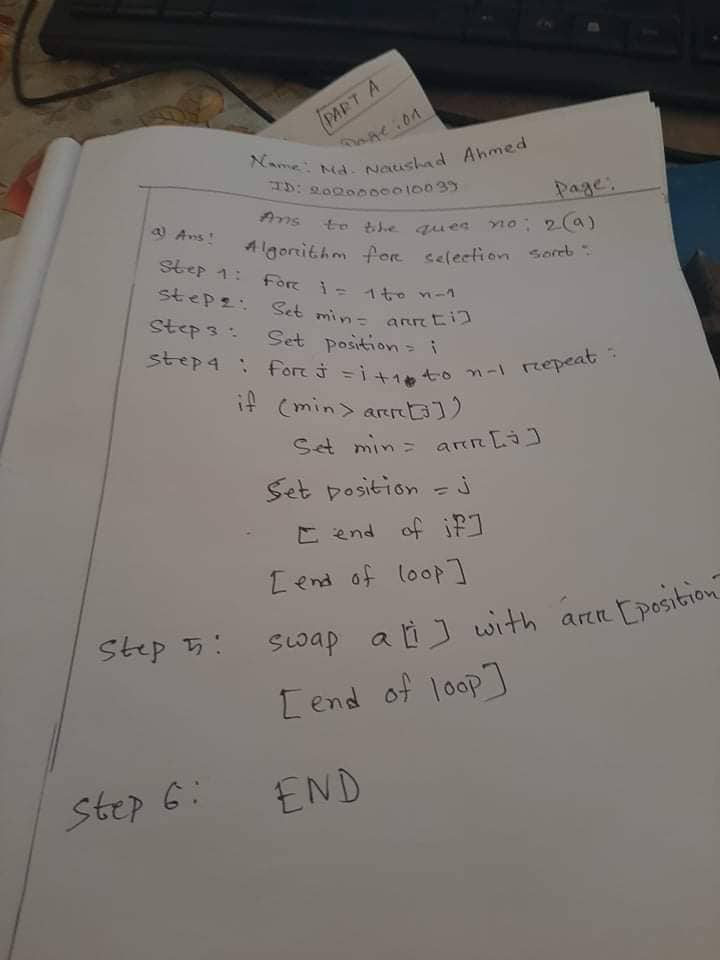 PART A
Page: 01
Name: Md. Naushad Ahmed
ID: 2020000010039
Page:
Ans to the ques no: 2(a)
a) Ans: Algorithm for selection sort:
Step 1: For i = 1 to n-1
Step 2: Set min = arr[i]
Step 3: Set position = i
Step 4: For j = i+1 to n-1 repeat:
if (min > arr[j])
Set min = arr[j]
Set position = j
[end of if]
[end of loop]
Step 5: swap a[i] with arr[position]
[end of loop]
Step 6: END